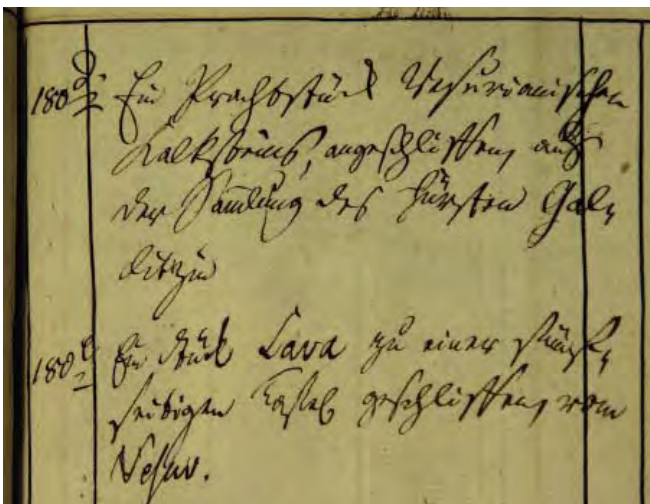 180 d. Ein Prachtstück Vesuvianischen
Kalksteins, angeschliffen, aus
der Sammlung des Fürsten Gal-
litzin
180 e. Ein Stück Lava zu einer fünf-
seitigen Tafel geschliffen, vom
Vesuv.